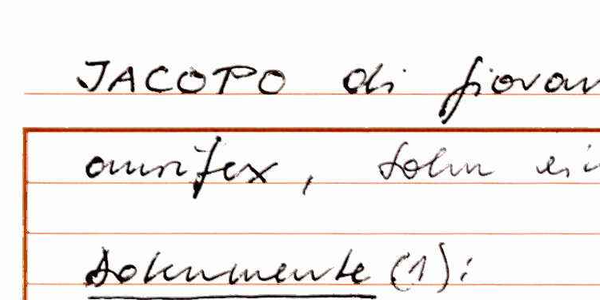 JACOPO di Giovan
aurifex, Sohn ei
Dokumente (1):